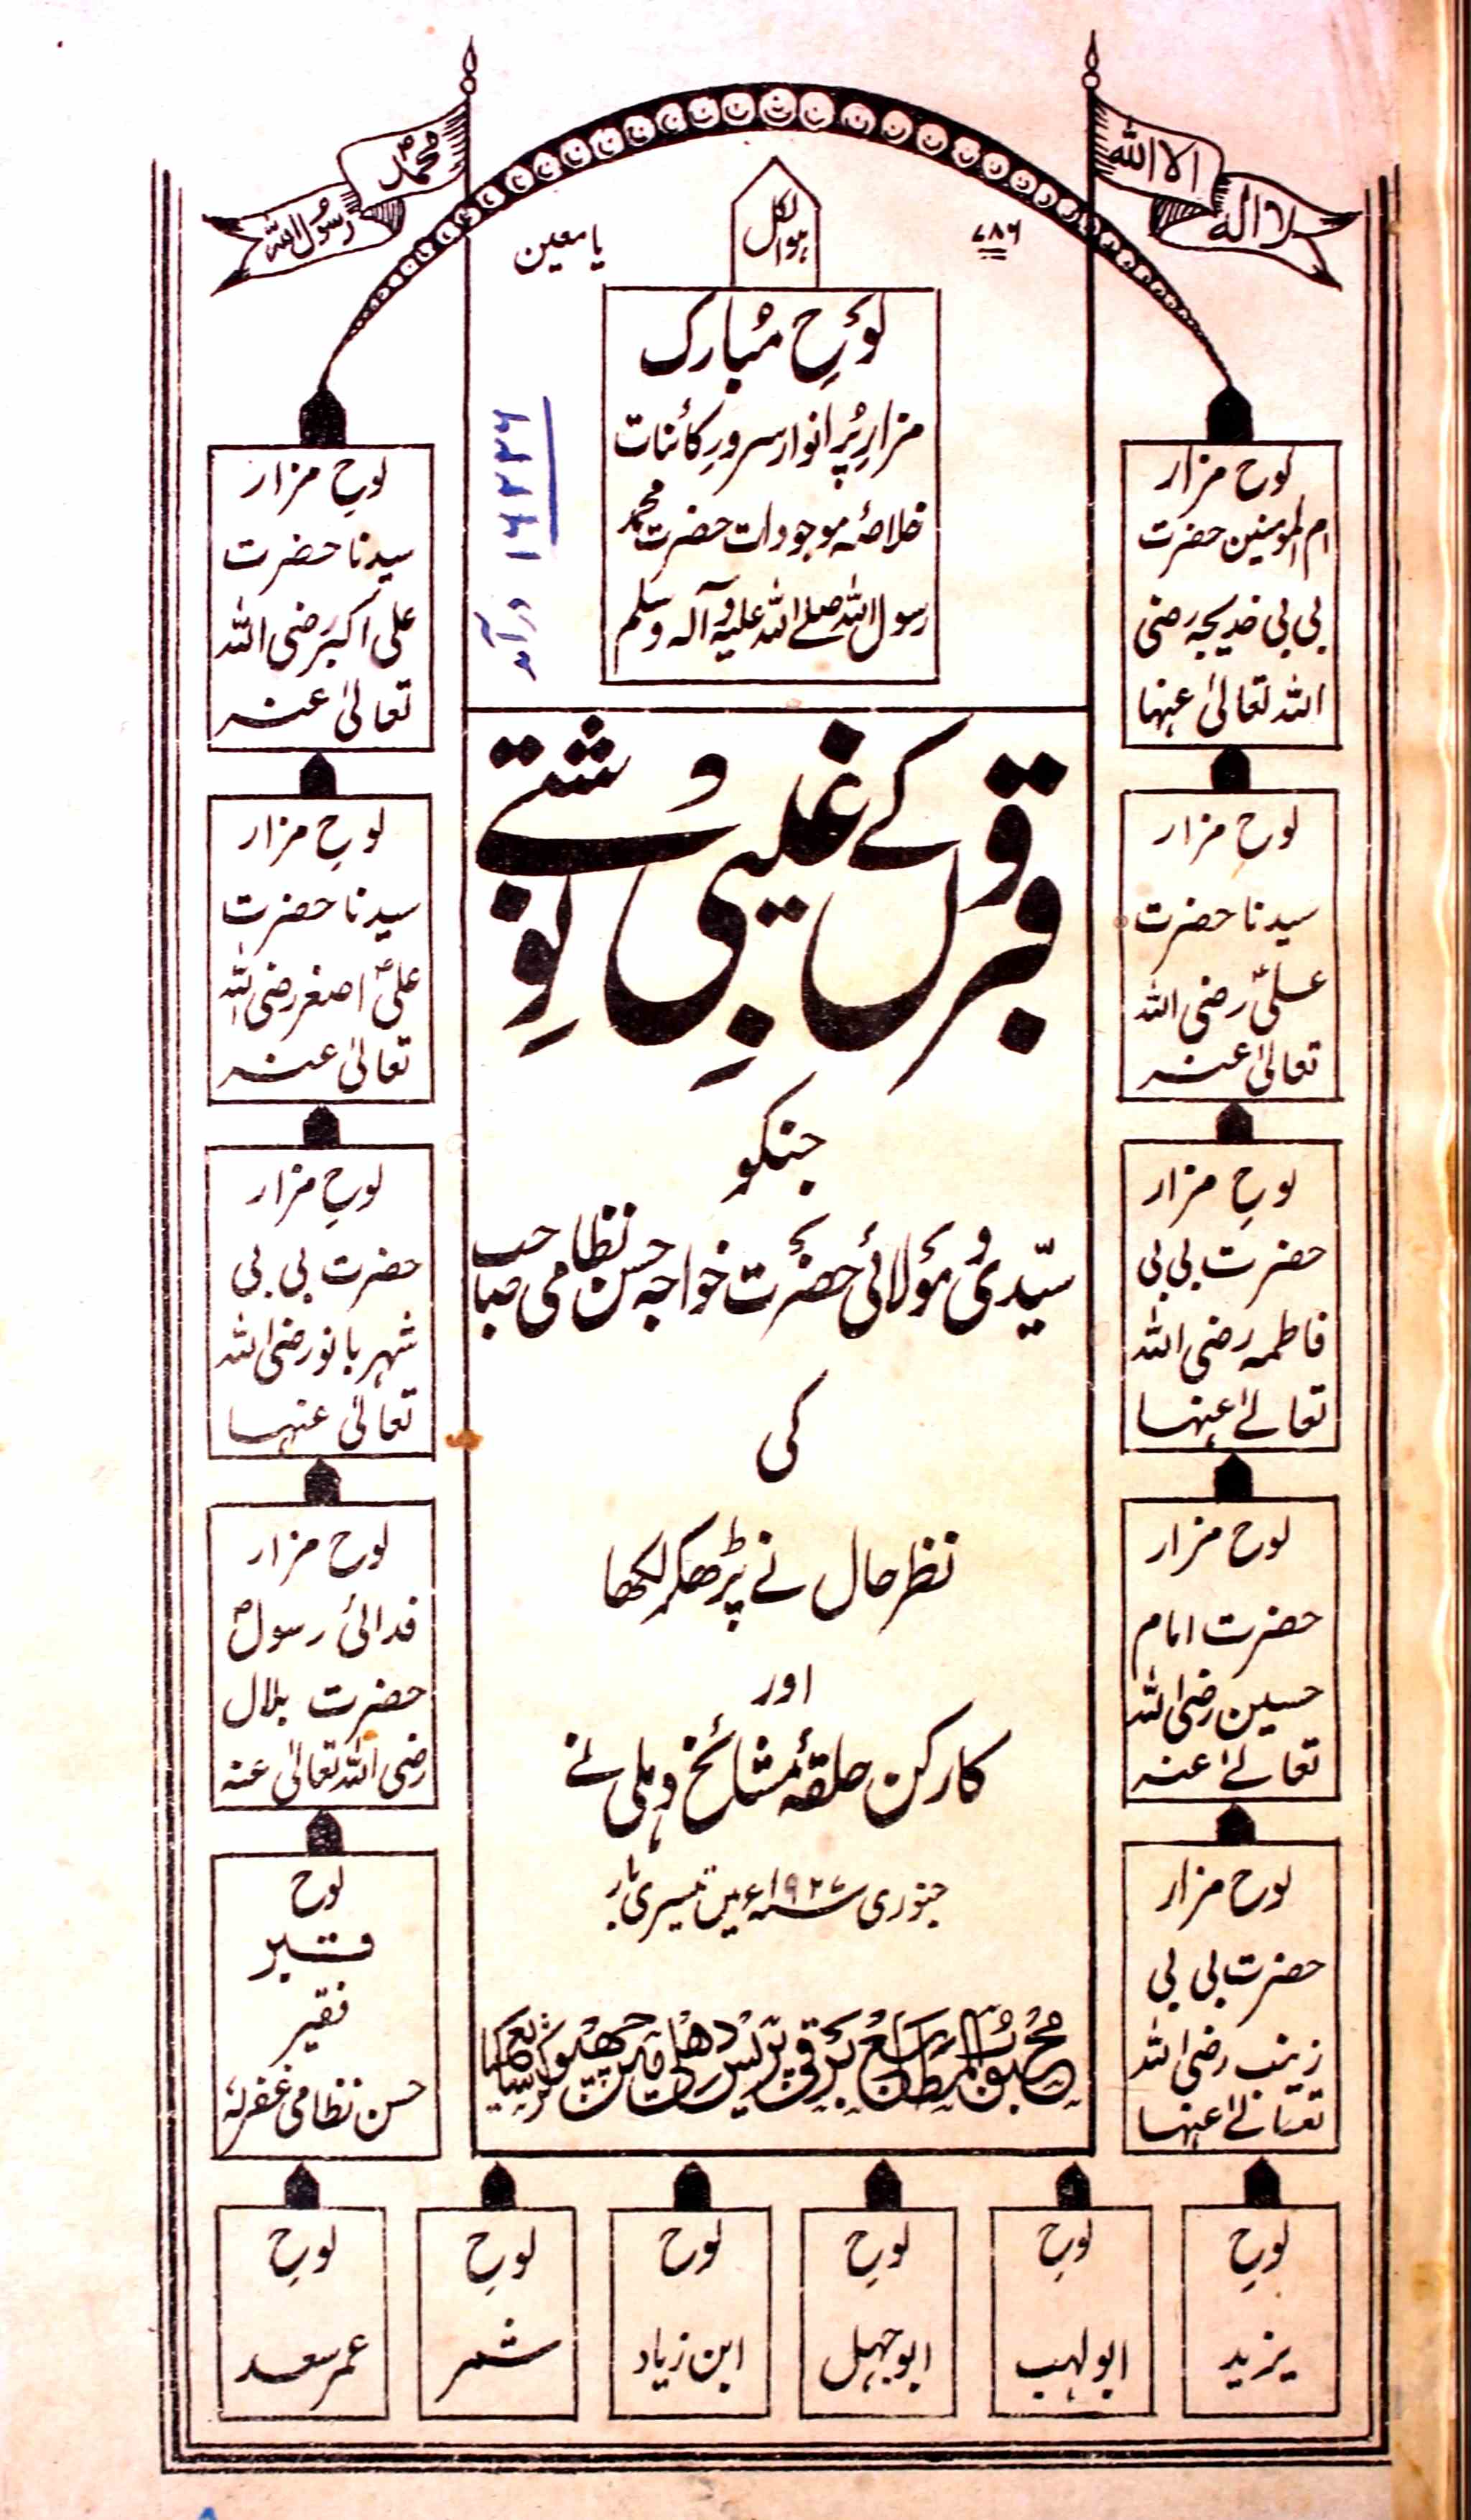 لا الہ
الا اللہ
محمدؐ
رسول اللہ
۷۸۶
ہوالکل
یا معین
لوحِ مُبارک
مزارِ پُر انوار سرورِ کائنات
خلاصۂ موجودات حضرت محمدؐ
رسول اللہ صلے اللہ علیہ وآلہ وسلم
۱۶۲۲۶
درآمد
لوح مزار
ام المومنین حضرت
بی بی خدیجہ رضی
اللہ تعالیٰ عنہا
لوح مزار
سیدنا حضرت
علیؑ رضی اللہ
تعالیٰ عنہ
لوحِ مزار
حضرت بی بی
فاطمہ رضی اللہ
تعالےٰ عنہا
لوح مزار
حضرت امام
حسین رضی اللہ
تعالےٰ عنہ
لوح مزار
حضرت بی بی
زینب رضی اللہ
تعالےٰ عنہا
قبروں کے غیبی نوشتے
جنکو
سیّدی و مولائی حضرت خواجہ حسن نظامی صاحب
کی
نظر حال نے پڑھکر لکھا
اور
کارکن حلقۂ مشائخ دہلی نے
جنوری ۱۹۲۷ء میں تیسری بار
محبوب المطابع برقی پریس دھلی میں چھپواکر شایع کیا
لوحِ مزار
سیدنا حضرت
علی اکبر رضی اللہ
تعالیٰ عنہ
لوحِ مزار
سیدنا حضرت
علیؑ اصغر رضی اللہ
تعالیٰ عنہ
لوحِ مزار
حضرت بی بی
شہر بانو رضی اللہ
تعالیٰ عنہا
لوح مزار
فدائی رسولؐ
حضرت بلال
رضی اللہ تعالیٰ عنہ
لوح
قبر
فقیر
حسن نظامی غفرلہٗ
لوحِ
یزید
لوحِ
ابولہب
لوحِ
ابوجہل
لوح
ابن زیاد
لوحِ
شمر
لوحِ
عمر سعد